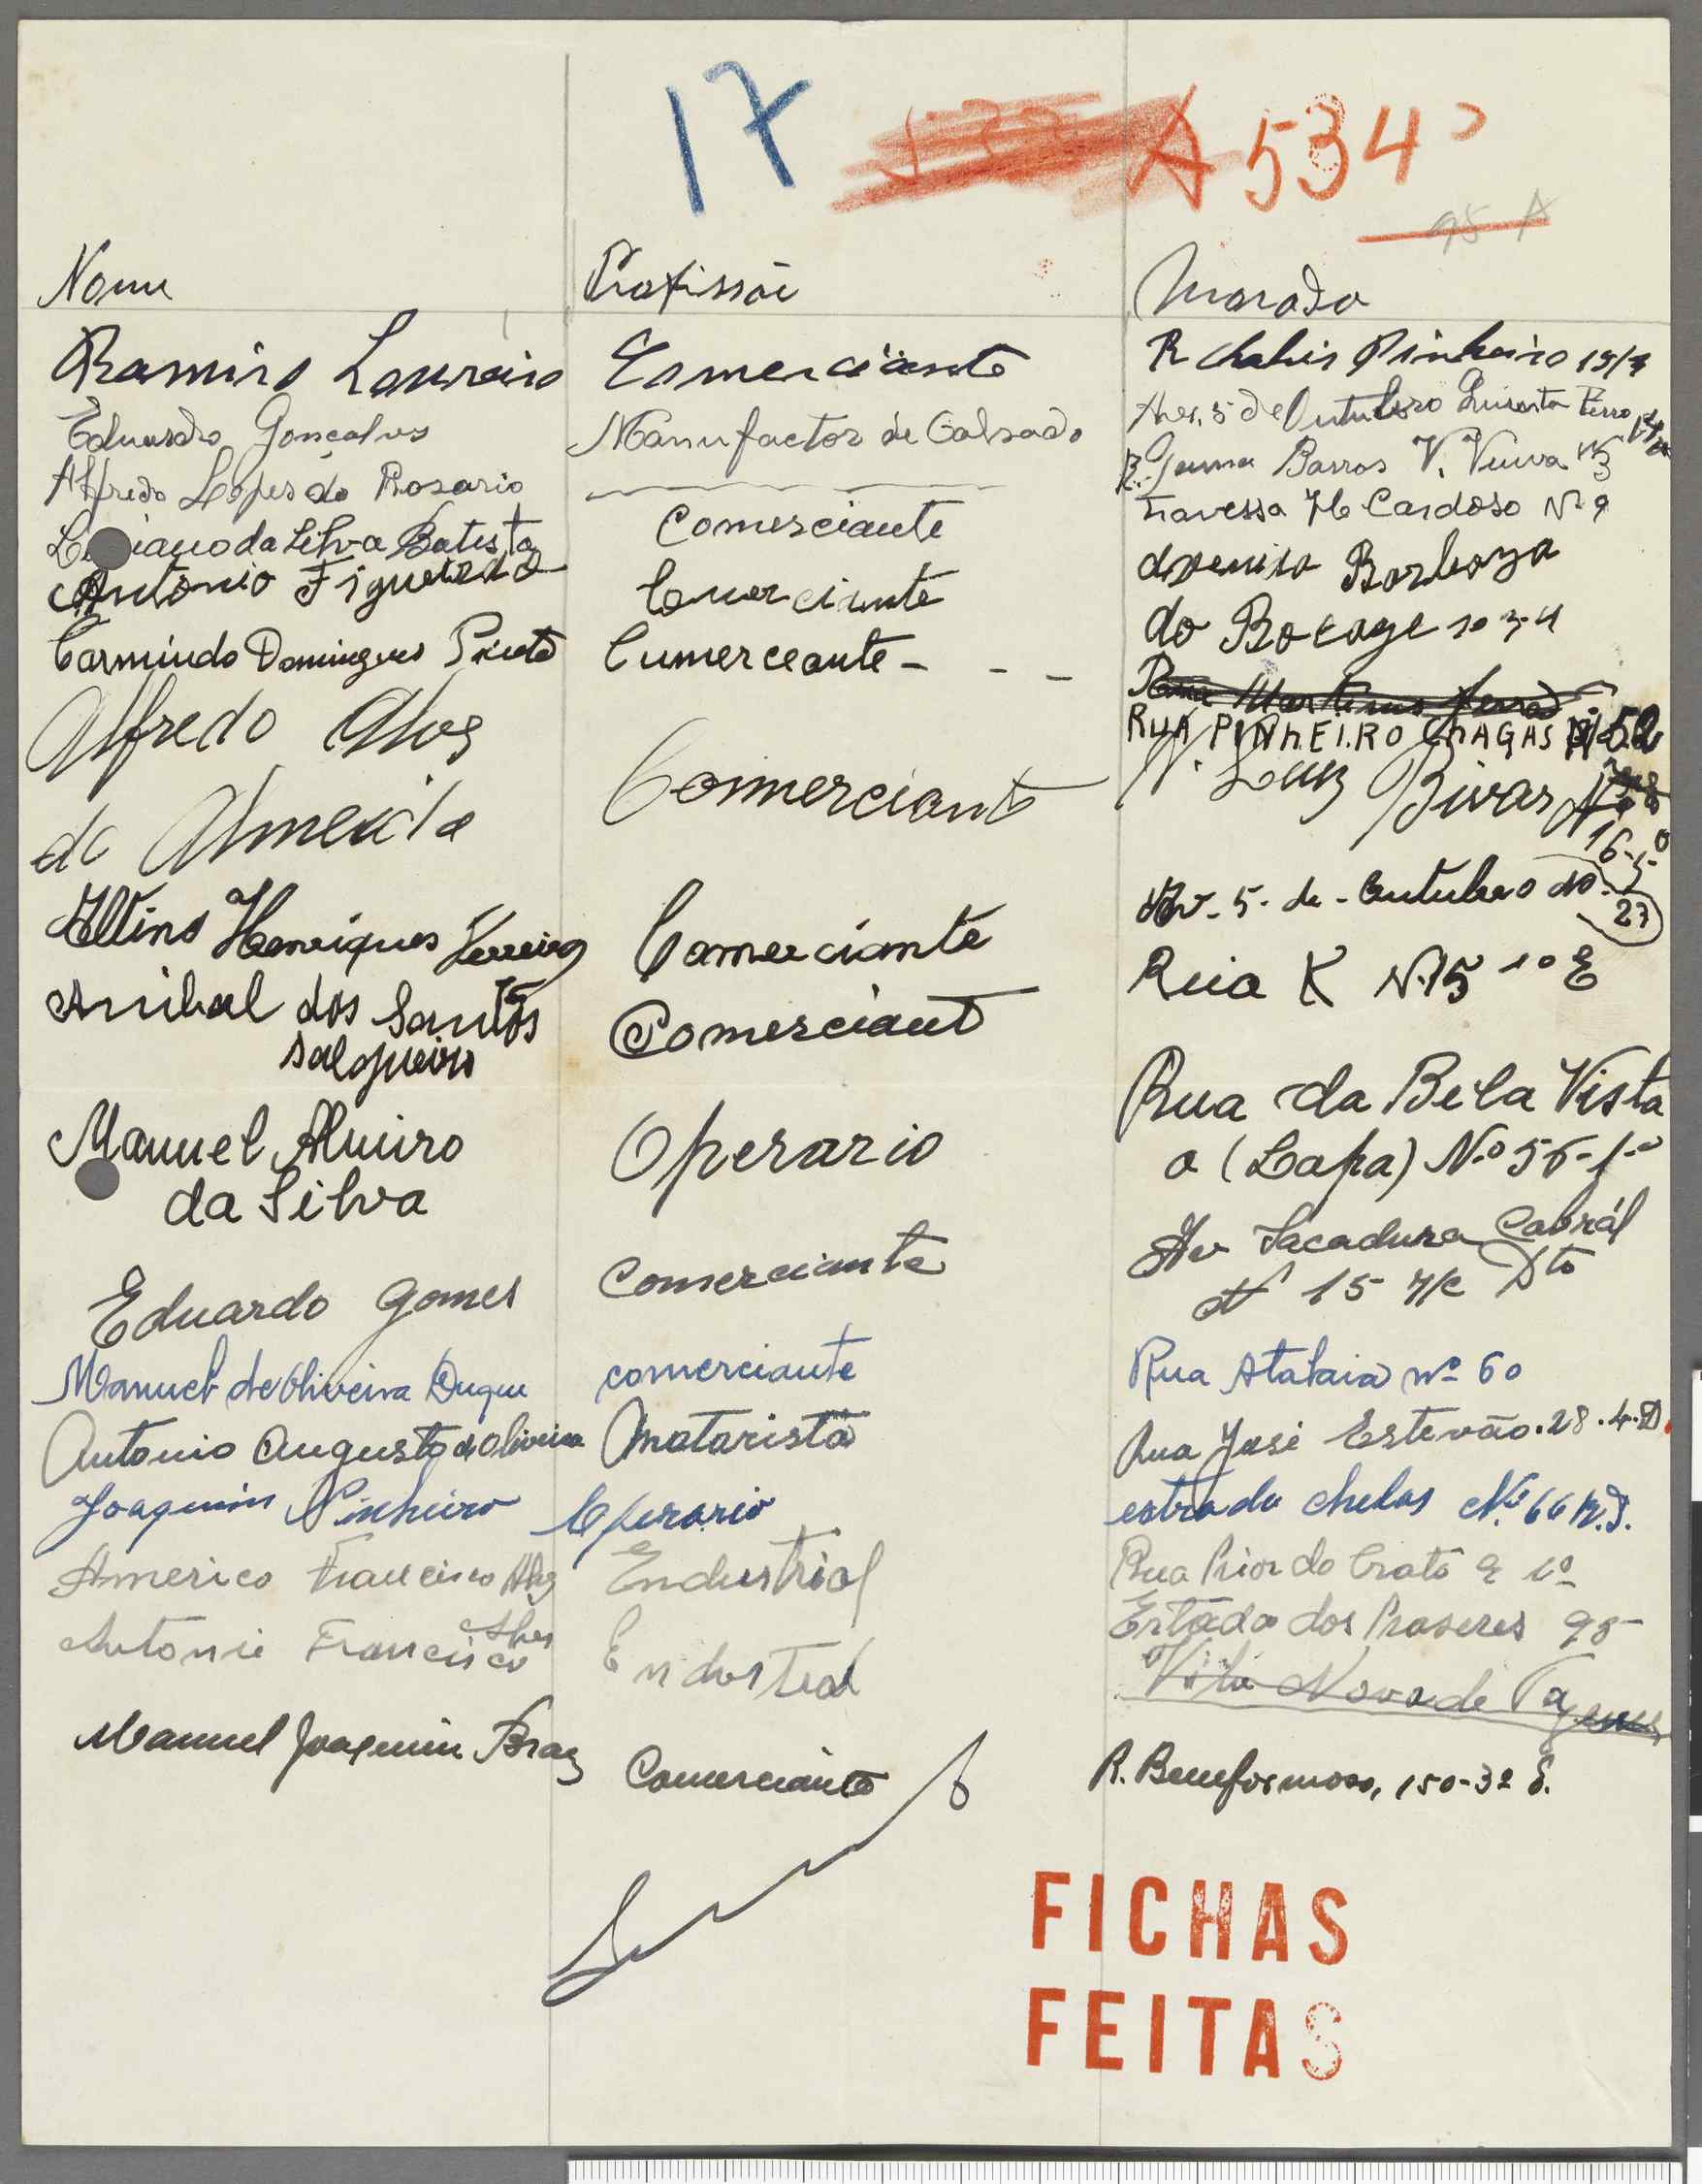 17 A 534
95 A
Nome Profissão Morada
Ramiro Loureiro Comerciante R Chabis Pinheiro 19/4
Eduardo Gonçalves Manufactor de Calsado Ave. 5 de Outubro Quinta Ferro
Alfredo Lopes do Rosario R. Gama Barros V. Viuva Nº 3
da Silva Batista Comerciante travessa H Cardoso Nº 9
Antonio Figueiredo Comerciante avenida Barboza
do Bocage 10 3-4
Carmindo Domingues Pinto Cumerceante - - -
RUA PINHEIRO CHAGAS 52
Alfredo Alves
de Almeida Comerciante Bivar
16-5º
Altino Henriques Ferreira Comerciante Av. 5 de Outubro
27
Anibal dos Santos
Salgueiro Comerciant Rua K Nº 15 1º E
Manuel Alueiro
da Silva Operario Rua da Bela Vista
a (Lapa) Nº 56-1º
Eduardo Gomes Comerciante Av Sacadura Cabrál
Nº 15 r/c Dto
Manuel de Oliveira Duque comerciante Rua Atalaia nº 60
Antonio Augusto de Oliveira Motarista Rua José Estevão. 28. 4. D.
Joaquim Pinheiro Operario estrada chelas Nº 66 R.D.
Americo Francisco Alvz Endustrial Rua Prior do Crato 9 1º
Antonie Francisco Alves Endosteal Estada dos Praseres 95
Vila Nova de
Manuel Joaquim Braz Comerciante R. Benformoso, 150-3º E.
FICHAS
FEITAS